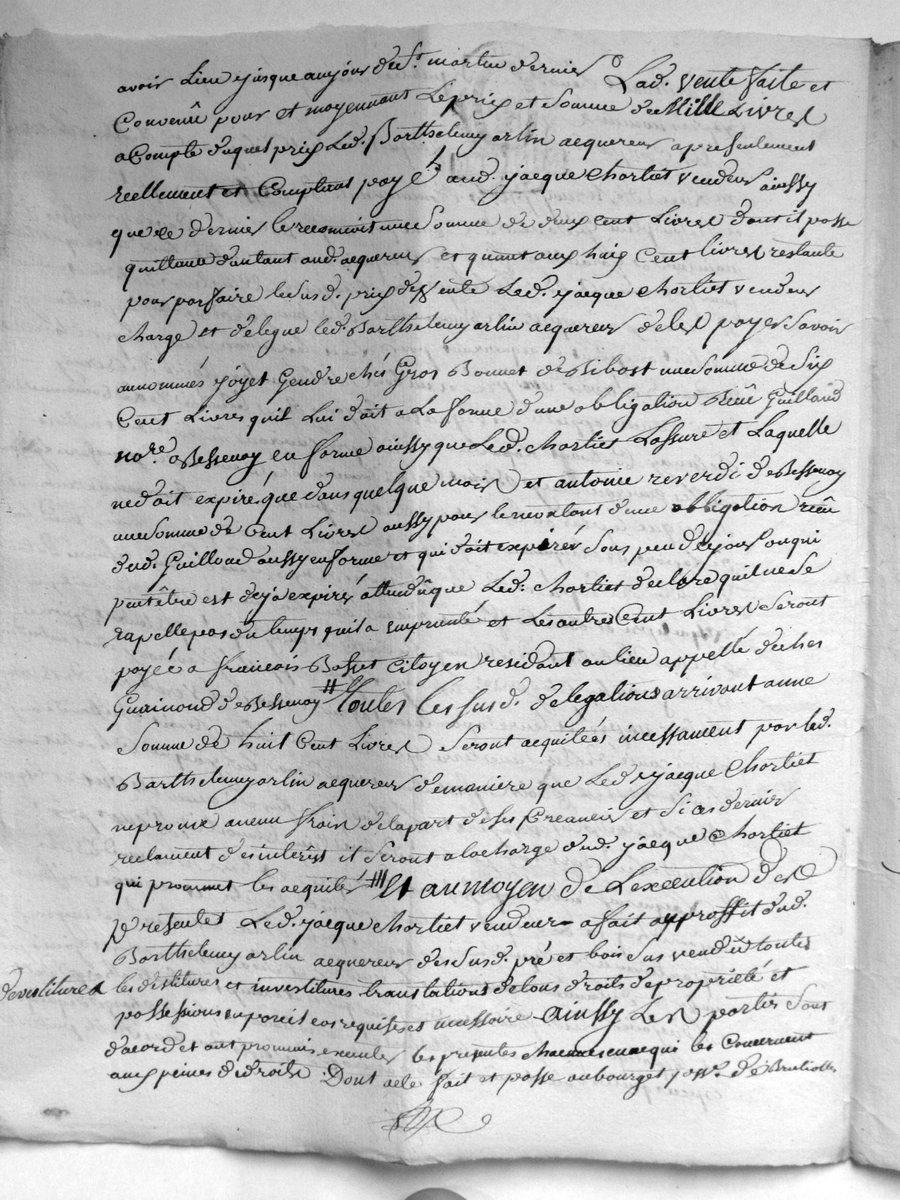 avoir Lieu jusque au jour de st. martin dernier Lad. vente faite et
Convenû pour et moyennant Le prix et Somme de Mille Livres
a Compte duquel prix Led. Barthelemy arlin acquereur a presentement
reellement et Comptant payé aud. jacque Chorliet vendeur ainssy
que ce dernier le reconnoit une Somme de deux Cent Livres dont il passe
quittance d'autant aud. acquereur et quant aux huit Cent livres restante
pour parfaire le susd. prix de vente Led. jacque Chorliet vendeur
charge et delegue led. Barthelemy arlin acquereur de les payer Savoir
au nommés joyet Gendre chés Gros Bonnet de Bibost une Somme de Six
Cent Livres quil Lui doit a La forme d'une obligation reçûe Guilland
nore. a Bessenay en forme ainssy que Led. Chorliet Lassure et Laquelle
ne doit expiré que dans quelque mois et antoine reverdi de Bessenay
une Somme de Cent Livres aussy pour le montant d'une obligation reçu
dud. Guilland aussy en forme et qui doit expirér Sous peu de jour ou qui
peut être est deja expirés attendûque Led. Chorliet declare quil ne Se
rapelle pas du temps quil a emprunté et Les autres Cent Livres Seront
payée a francois Basset Citoyen residant au lieu appellé de chez
Guainond de Bessenay # toutes les susd. delegations arrivant a une
Somme de huit Cent Livres Seront acquitéés incessament par led.
Barthelemy arlin acquereur de maniere que Led. jacque Chorliet
neprouve aucun frais de la part de ses Creancier et Si ces dernier
reclament des interest il Seront a la charge dud. jacque Chorliet
qui prommet les acquiter ## Et au moyen de L'execution des
presentes Led. jacque Chorliet vendeur a fait au proffit dud.
Barthelemy arlin acquereur des susd. pré et bois sus vendû toutes
devestitures
les destitures et investitures translations de tous droits de propriété et
possessions en pareil cas requises et necessaire ainssy Les parties Sont
d'acord et ont prommis executer les presentes chacunes en ce qui les Concernent
aux peines de droits. Dont acte fait et passe au bourg et de Brullioles